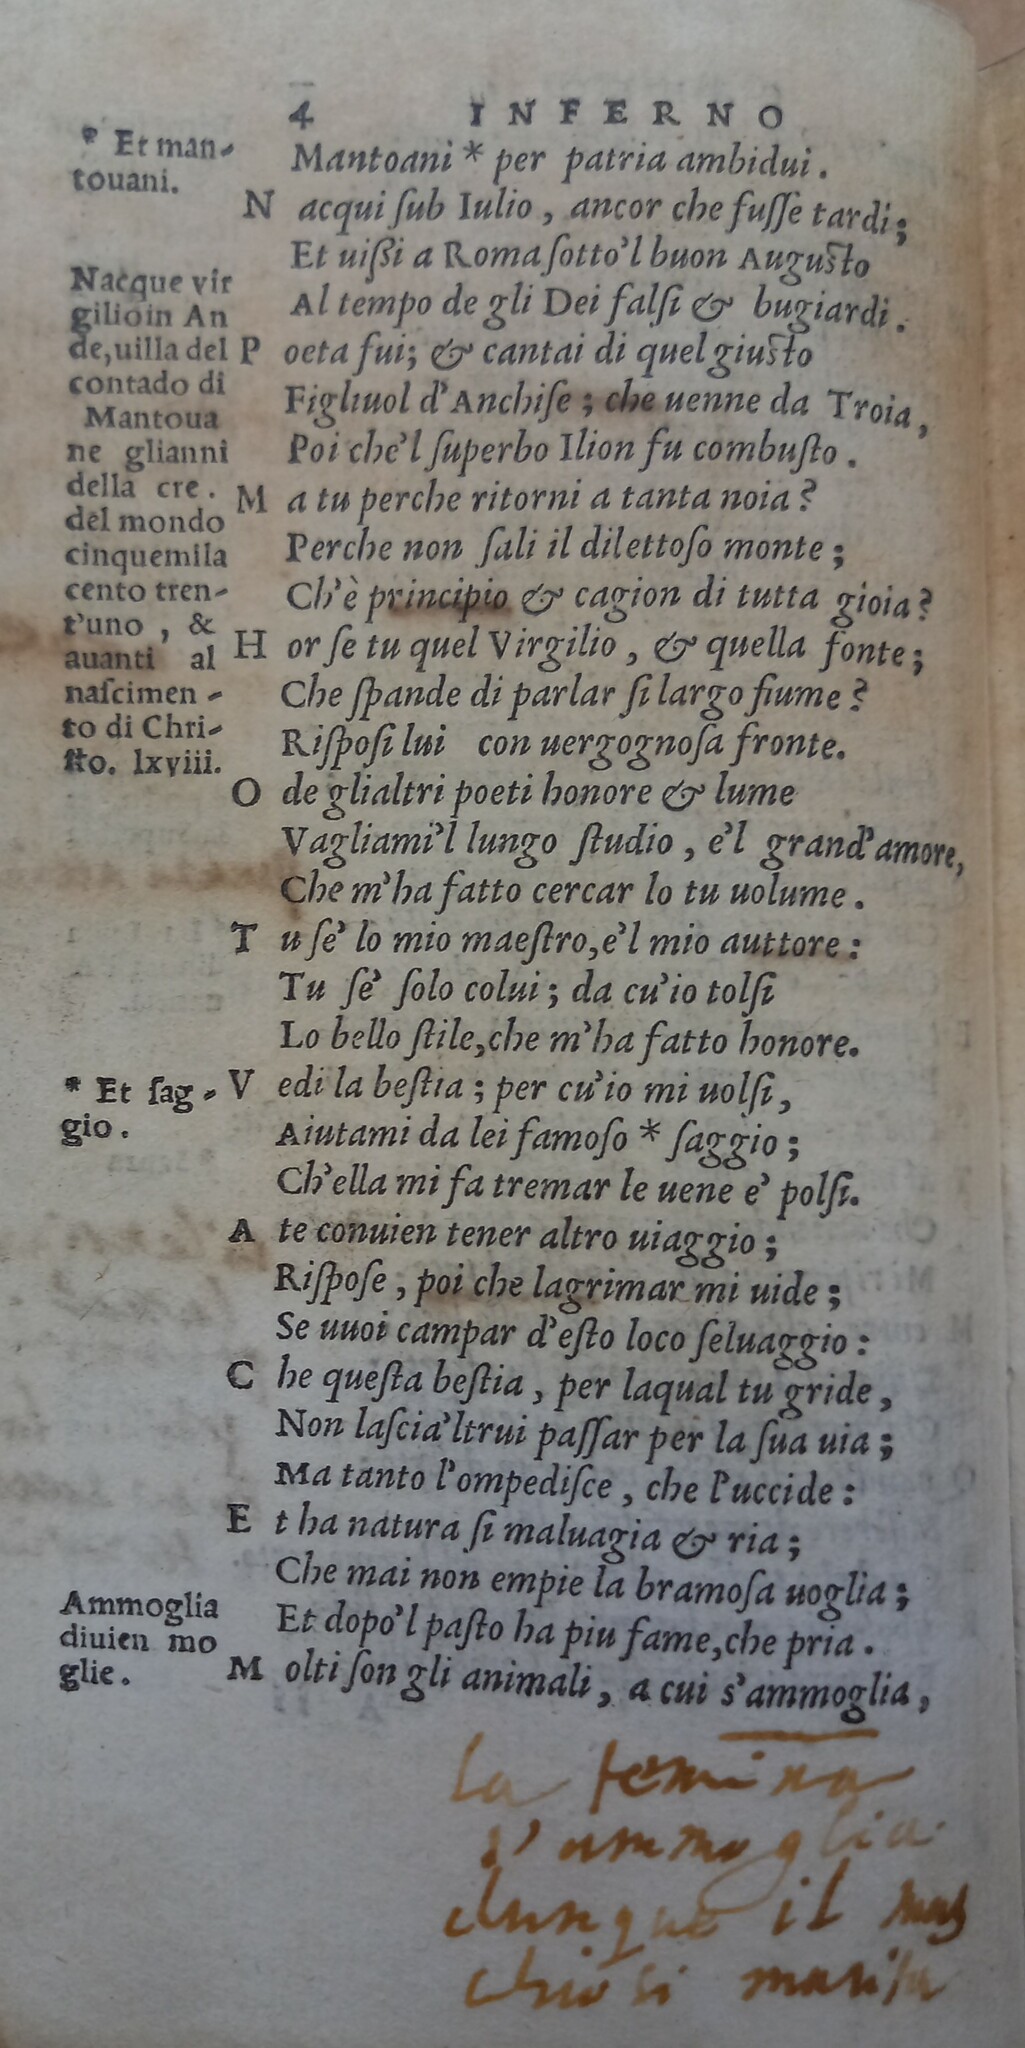 4 INFERNO
* Et man-
touani.
Mantoani * per patria ambidui.
N acqui ſub Iulio, ancor che fuſſe tardi;
Et uißi a Roma ſotto'l buon Auguſto
Al tempo de gli Dei falſi & bugiardi.
P oeta fui; & cantai di quel giuſto
Figliuol d'Anchiſe; che uenne da Troia,
Poi che'l ſuperbo Ilion fu combuſto.
M a tu perche ritorni a tanta noia?
Perche non ſali il dilettoſo monte;
Ch'è principio & cagion di tutta gioia?
H or ſe tu quel Virgilio, & quella fonte;
Che ſpande di parlar ſi largo fiume?
Riſpoſi lui con uergognoſa fronte.
Nacque vir
gilio in An
de, uilla del
contado di
Mantoua
ne glianni
della cre.
del mondo
cinquemila
cento tren-
t'uno, &
auanti al
naſcimen-
to di Chri-
ſto. lxviii.
O de glialtri poeti honore & lume
Vagliami'l lungo ſtudio, e'l grand'amore,
Che m'ha fatto cercar lo tu uolume.
T u ſe' lo mio maeſtro, e'l mio auttore:
Tu ſe' ſolo colui; da cu'io tolſi
Lo bello ſtile, che m'ha fatto honore.
V edi la beſtia; per cu'io mi uolſi,
Aiutami da lei famoſo * ſaggio;
Ch'ella mi fa tremar le uene e' polſi.
* Et ſag-
gio.
A te conuien tener altro uiaggio;
Riſpoſe, poi che lagrimar mi uide;
Se uuoi campar d'eſto loco ſeluaggio:
C he queſta beſtia, per laqual tu gride,
Non laſcia'ltrui paſſar per la ſua uia;
Ma tanto l'ompediſce, che l'uccide:
E t ha natura ſi maluagia & ria;
Che mai non empie la bramoſa uoglia;
Et dopo'l paſto ha piu fame, che pria.
M olti ſon gli animali, a cui s'ammoglia,
Ammoglia
diuien mo
glie.
la femina
s'ammoglia
dunque il mas
chio si marita